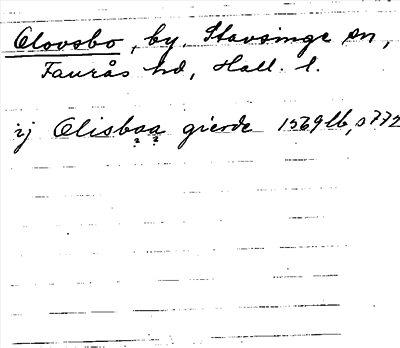 Olovsbo, by. Stavsinge sn,
Faurås hd, Hall. l.
ij Olisbaa gierde 1569 lb, s 772